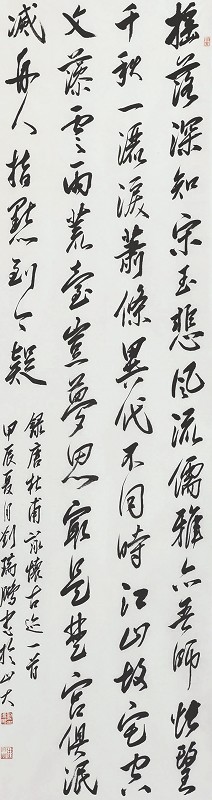 搖落深知宋玉悲風流儒雅亦吾師悵望
千秋一灑淚蕭條異代不同時江山故宅空
文藻雲雨荒臺豈夢思最是楚宮俱泯
滅舟人指點到今疑
錄唐杜甫詠懷古迹一首
甲辰夏月劉瑞鵬書於山大